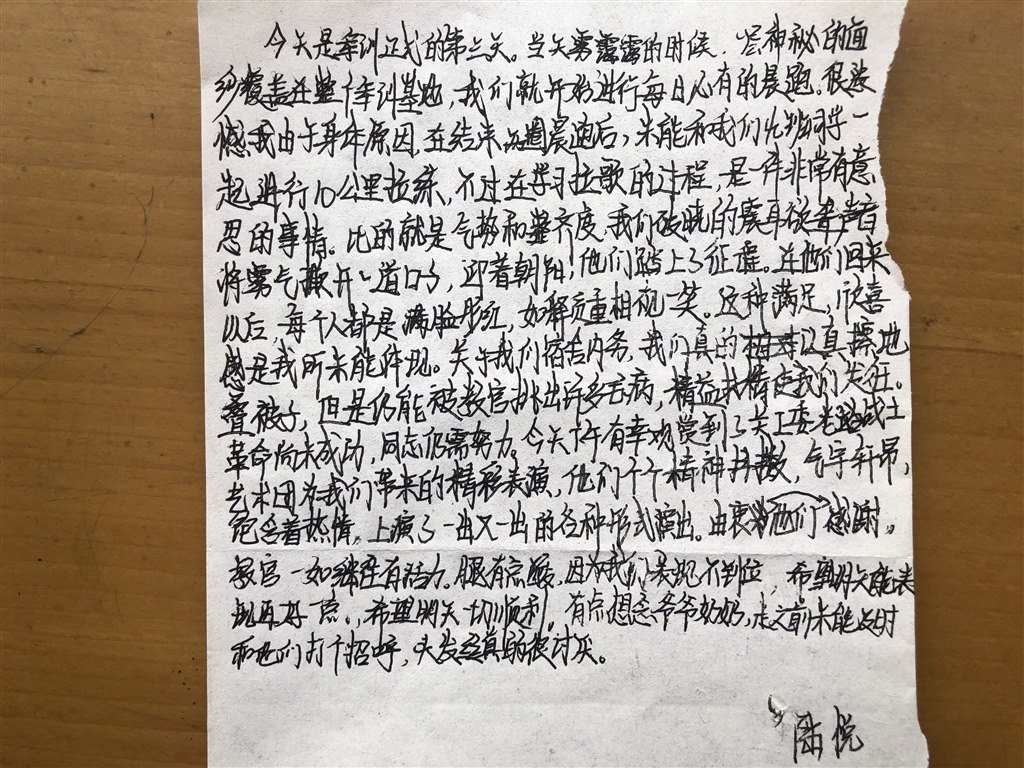 今天是军训正式的第三天。当天雾露露的时候.尽神秘的面
纱覆盖在整个军训基地,我们就开始进行每日必有的晨跑。很遗
憾我由于身体原因.在结束两週晨跑后,未能和我们班同学一
起进行10公里拉练,不过在学习拉歌的过程,是一件非常有意
思的事情。比的就是气势和整齐度.我们破晓的震耳欲聋声音
将雾气撕开一道口子,迎着朝阳,他们踏上了征程。在他们回来
以后,每个人都是满脸彤红,如释负重相视一笑。这种满足,欣喜
感是我所未能体现。关于我们宿舍内务,我们真的认真地
叠被子,但是仍能被教官挑出许多毛病,精益求精是我们责任。
革命尚未成功,同志仍需努力。今天下午有幸观赏到了关工委老战士
艺术团为我们带来的精彩表演,他们个个精神抖擞,气宇轩昂,
饱含着热情,上演了一出又一出的各种形式演出。由衷为他们感谢。
教官一如继往有活力.腿有点酸,因为我们表现不到位,希望明天能表
现更好一点,希望明天一切顺利。有点想念爷爷奶奶,走之前未能及时
和他们打个招呼,头发真的很讨厌。
陆悦